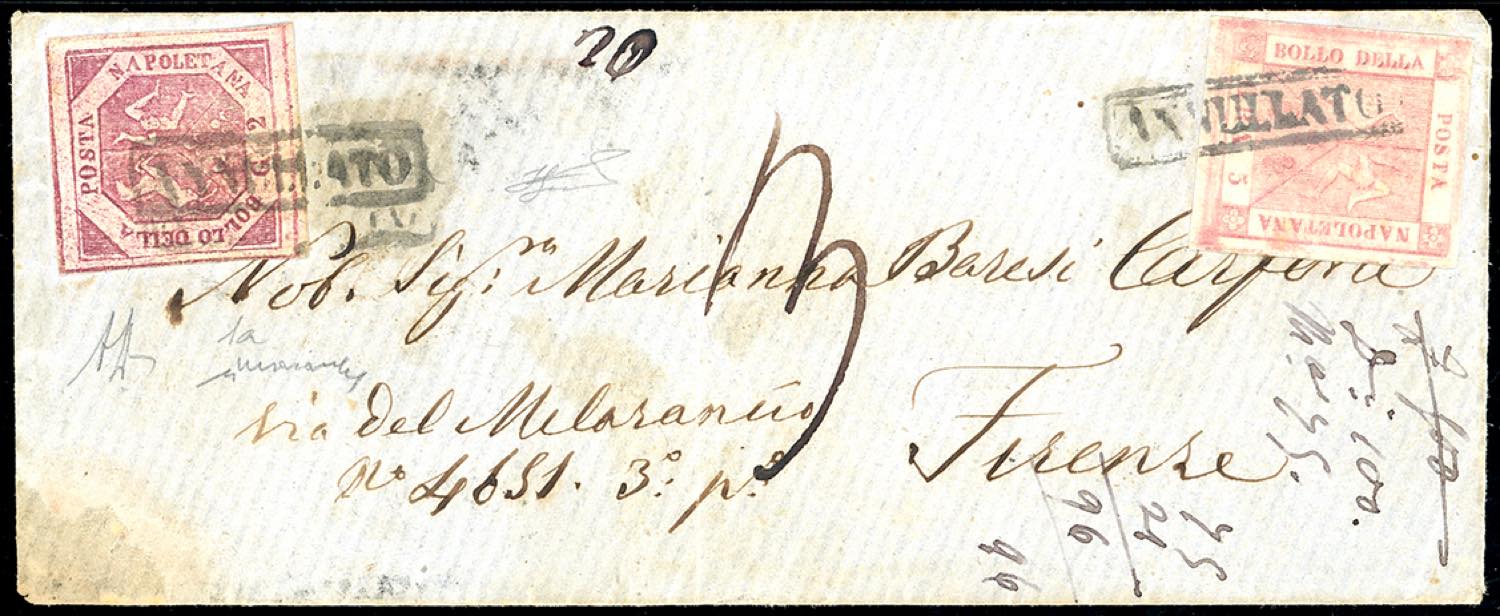 20
POSTA NAPOLETANA
BOLLO DELLA G. 2
ANNULLATO
BOLLO DELLA
POSTA
NAPOLETANA
5
ANNULLATO
3
Nob. Sigr.ra Marianna Baresi
via del Melarancio
No 4651. 3o: po
Firenze
75
21
96
96